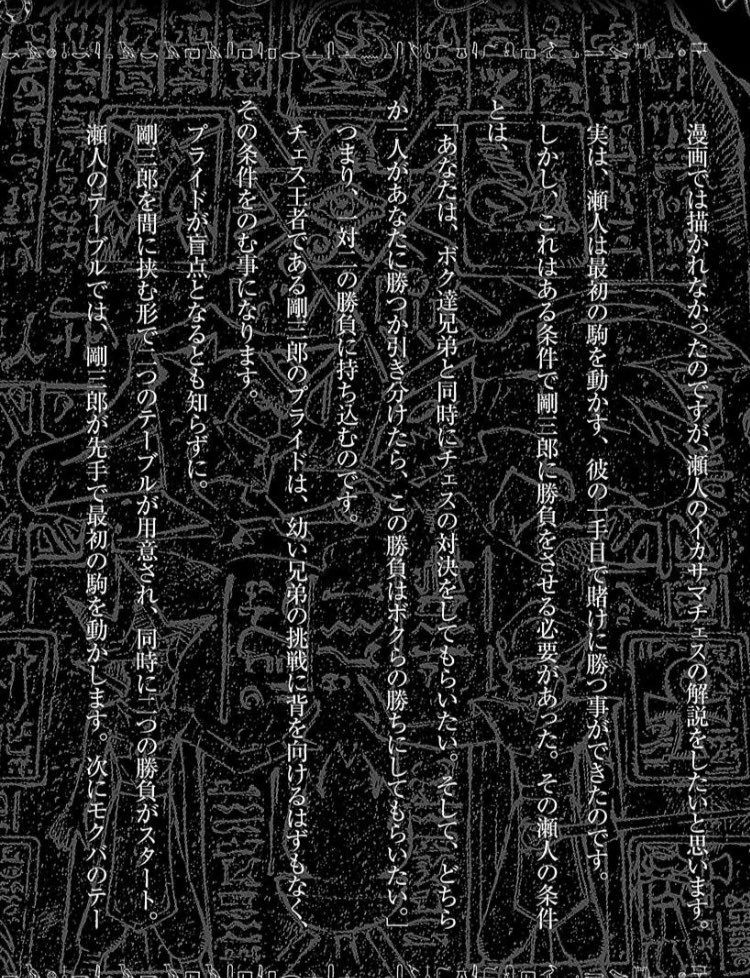 漫画では描かれなかったのですが、瀬人のイカサマチェスの解説をしたいと思います。
実は、瀬人は最初の駒を動かす、彼の一手目で賭けに勝つ事ができたのです。
しかし、これはある条件で剛三郎に勝負をさせる必要があった。その瀬人の条件
とは、
「あなたは、ボク達兄弟と同時にチェスの対決をしてもらいたい。そして、どちら
か一人があなたに勝つか引き分けたら、この勝負はボクらの勝ちにしてもらいたい。」
つまり、一対二の勝負に持ち込むのです。
チェス王者である剛三郎のプライドは、幼い兄弟の挑戦に背を向けるはずもなく、
その条件をのむ事になります。
プライドが盲点となるとも知らずに。
剛三郎を間に挟む形で二つのテーブルが用意され、同時に二つの勝負がスタート。
瀬人のテーブルでは、剛三郎が先手で最初の駒を動かします。次にモクバのテー